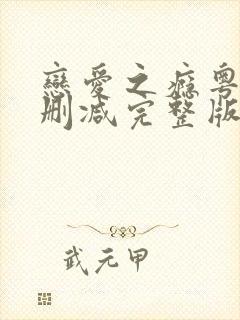 戀愛之癮粵
刪減完整版
武元甲